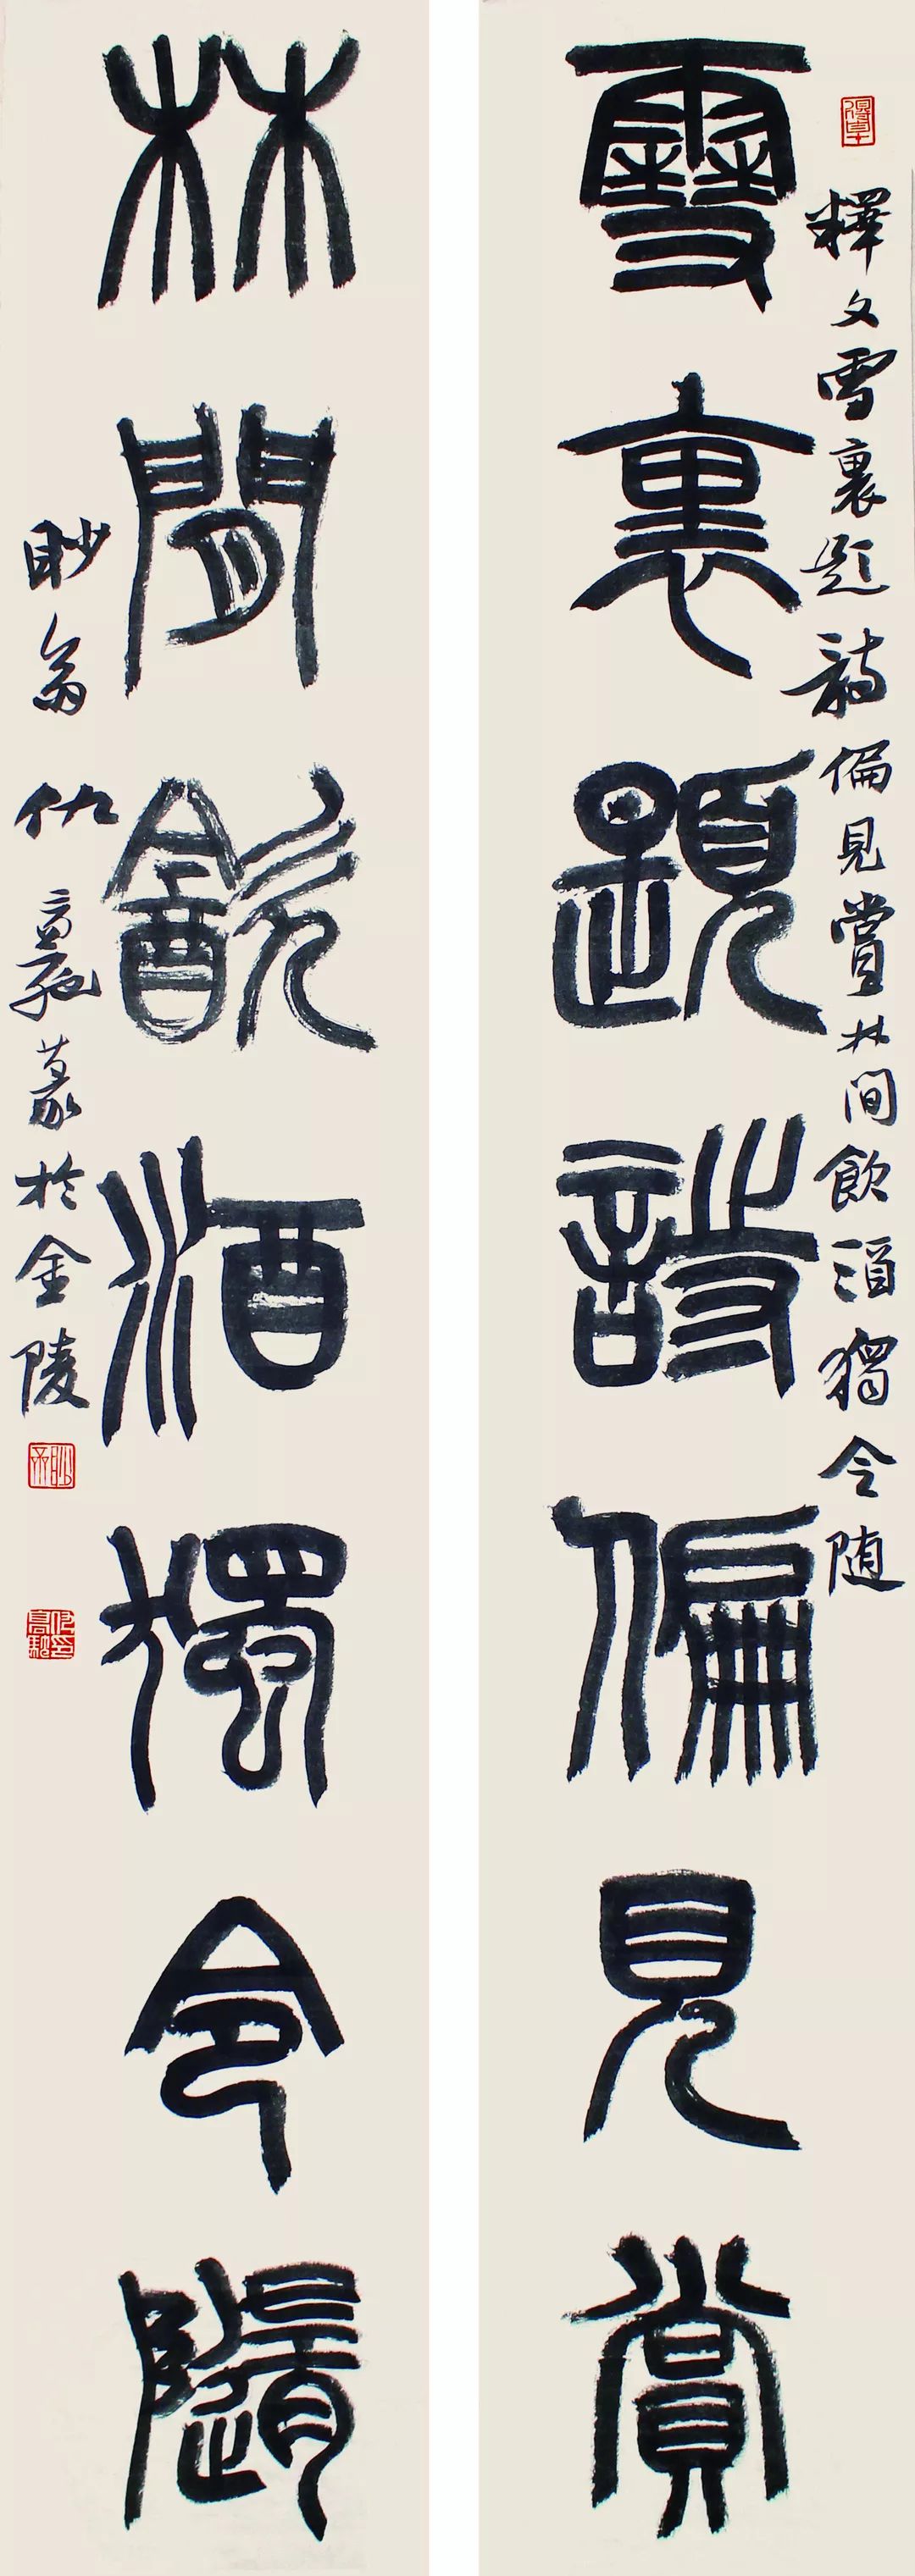 釋文雪裏題詩偏見賞林间飲酒獨令随
雪裏題詩偏見賞
林間飲酒獨令隨
眇翁仇高馳篆於金陵